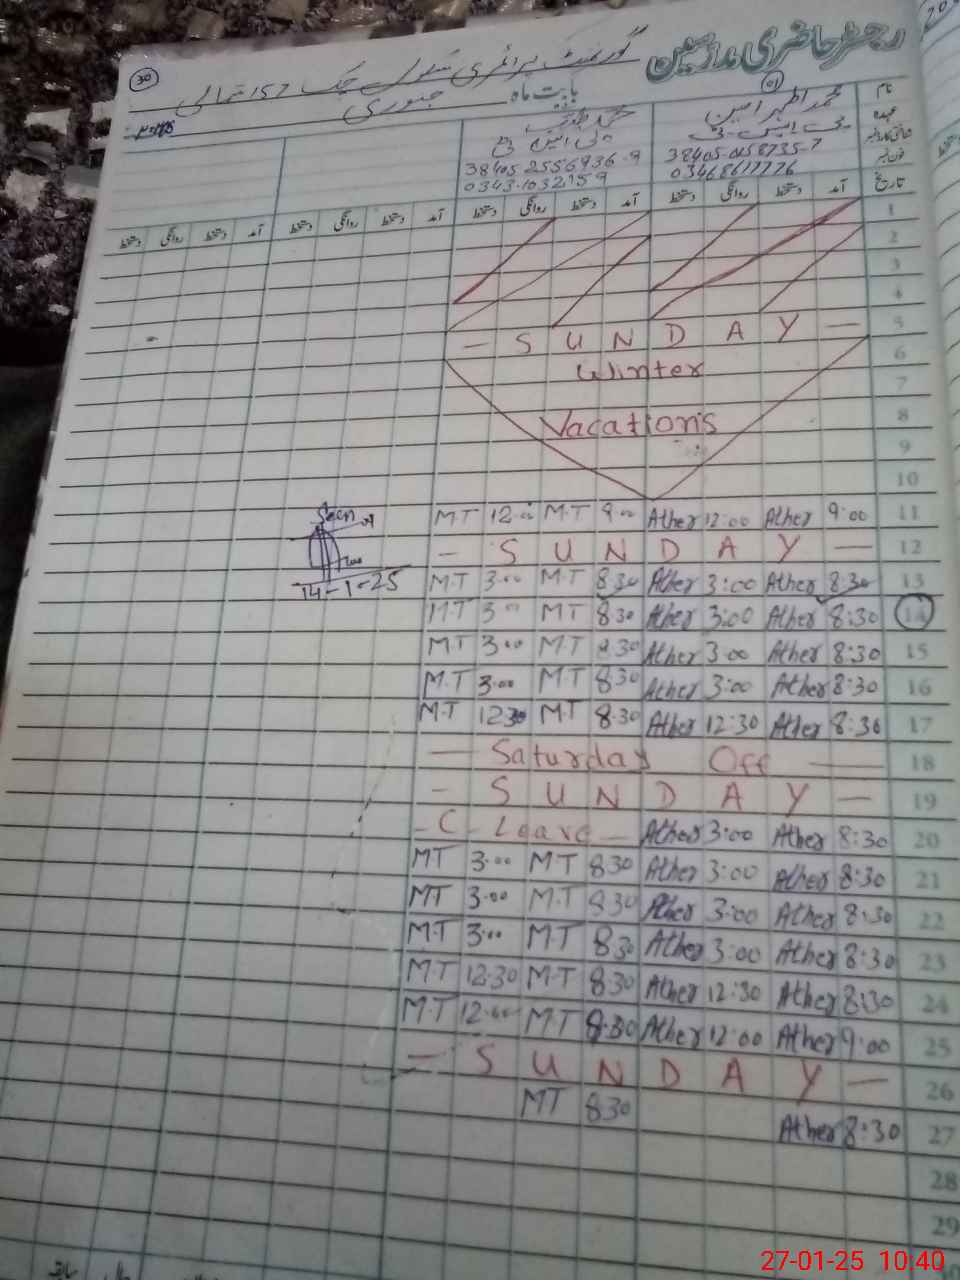 رجسٹر حاضری مدارسین
گورنمنٹ پرائمری سکول چک 157 شمالی
30
بابت ماہ جنوری
2025
نام
01
محمد اطہر امین
محمد طیب
عہدہ
پی ایس ٹی
پی ایس ٹی
38405-2556936-9
38405-0258735-7
فون نمبر
0343-1032159
03468617776
تاریخ
آمد دستخط روانگی دستخط آمد دستخط روانگی دستخط آمد دستخط روانگی دستخط آمد دستخط روانگی دستخط
1
2
3
4
— S U N D A Y — 5
Winter 6
7
Vacations 8
9
10
M.T 12:00 M.T 9:00 Ather 12:00 Ather 9:00 11
Seen
14-1-25
— S U N D A Y — 12
M.T 3:00 M.T 8:30 Ather 3:00 Ather 8:30 13
M.T 3:00 MT 8:30 Ather 3:00 Ather 8:30 14
M.T 3:00 M.T 8:30 Ather 3:00 Ather 8:30 15
M.T 3:00 M.T 8:30 Ather 3:00 Ather 8:30 16
M.T 12:30 M.T 8:30 Ather 12:30 Ather 8:30 17
— Saturday Off — 18
— S U N D A Y — 19
— C — Leave — Ather 3:00 Ather 8:30 20
MT 3:00 M.T 8:30 Ather 3:00 Ather 8:30 21
MT 3:00 M.T 8:30 Ather 3:00 Ather 8:30 22
M.T 3:00 M.T 8:30 Ather 3:00 Ather 8:30 23
M.T 12:30 M.T 8:30 Ather 12:30 Ather 8:30 24
M.T 12:00 M.T 8:30 Ather 12:00 Ather 9:00 25
— S U N D A Y — 26
MT 8:30 Ather 8:30 27
28
29
27-01-25 10:40